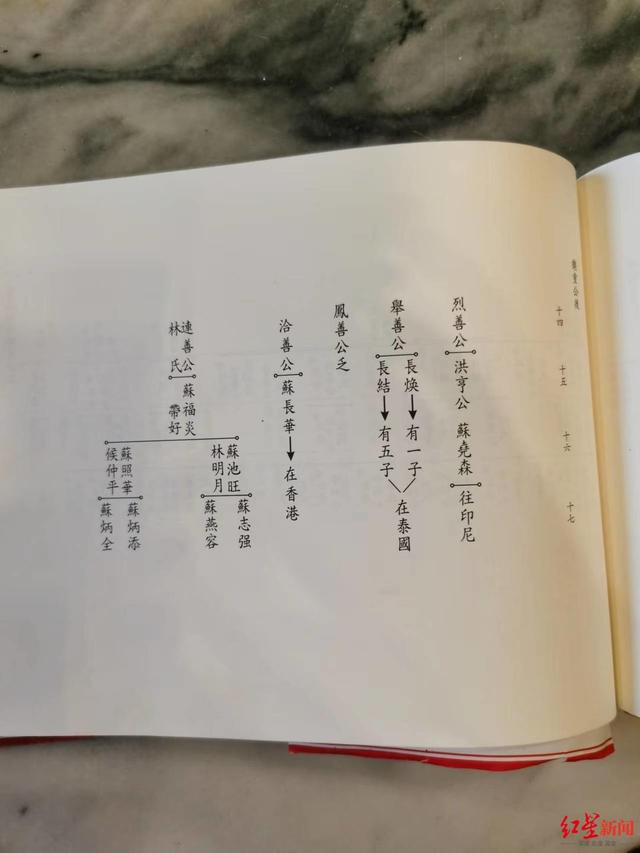 興重公後
十四
十五
十六
十七
烈善公
洪亨公
蘇堯森
往印尼
舉善公
長煥
有一子
長結
有五子
在泰國
鳳善公乏
洽善公
蘇長華
在香港
連善公
林氏
蘇福炎
帶好
蘇池旺
林明月
蘇志强
蘇燕容
蘇照華
候仲平
蘇炳添
蘇炳全
红星新闻